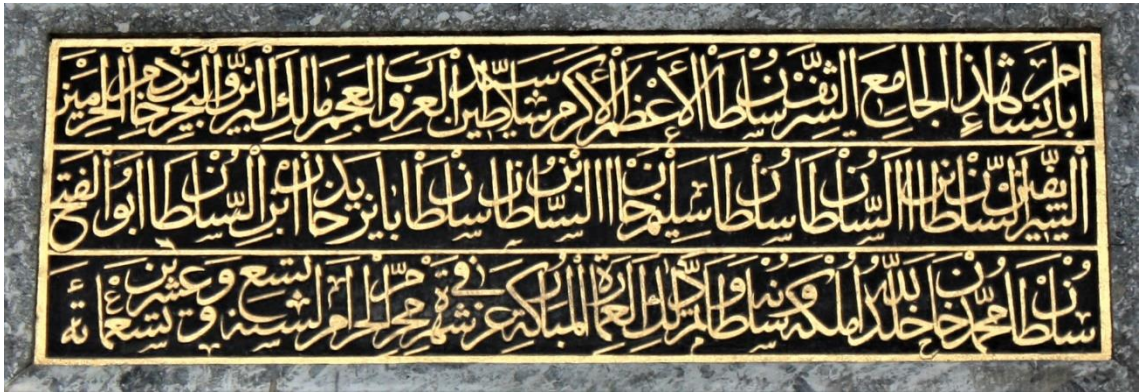 امر بإنشاء هذا الجامع الشريف سلطان الأعظم الأكرم سيد سلاطين العرب والعجم مالك البرين والبحرين خادم الحرمين
الشريفين السلطان ابن السلطان سلطان سليم خان ابن السلطان سلطان بايزيد خان ابن السلطان ابو الفتح
سلطان محمد خان خلد الله ملكه وسلطانه وتم ذلك العمارة المباركة في غرة شهر محرم الحرام لسنة تسع وعشرين وتسعمائة